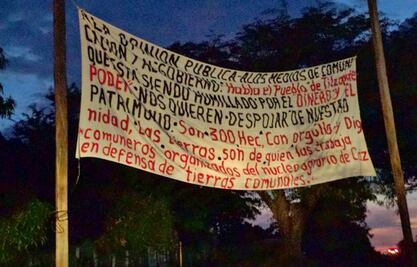 A LA OPINION PUBLICA A LOS MEDIOS DE COMUNI
CACION Y AL GOBIERNO: Habla el Pueblo de
QUE ESTA SIENDO HUMILLADO POR EL DINERO Y EL
PODER - NOS QUIEREN - DESPOJAR DE NUESTRO
PATRIMONIO - Son - 300 Hec, Con orgullo y Dig
nidad, Las tierras son de quien las trabaja
comuneros organizados del nucleo agrario de
en defensa de tierras comunales...